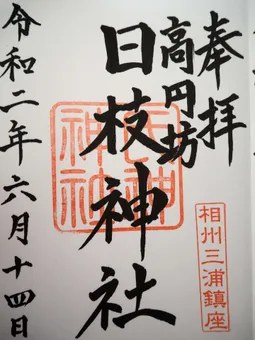 奉拝
高円坊
日枝神社
相州三浦鎮座
令和二年六月十四日